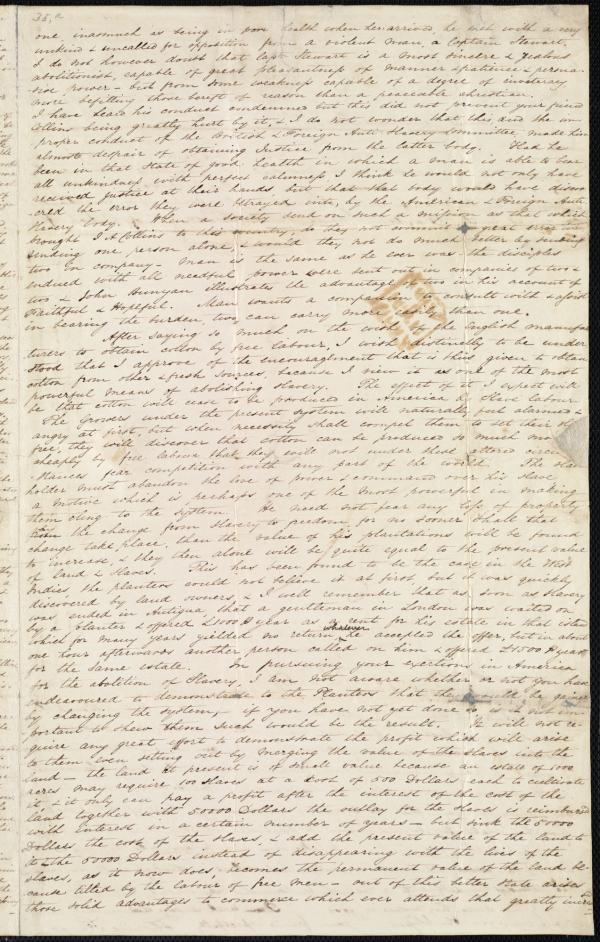 one inasmuch as being in poor health when he arrived, he met with a very
unkind & uncalled for opposition from a violent man, a Captain Stewart,
I do not however doubt that Capt Stewart is a most sincere & zealous
abolitionist, capable of great pleasantness of manner & patience & persua-
sive power - but from some weakness capable of a degree of inveteracy
more befitting those bereft of reason than a peaceable christian.
I have heard his conduct condemned but this did not prevent your friend
Collins being greatly hurt by it, & I do not wonder that this and the im-
proper conduct of the British & Foreign Anti Slavery Committee made him
almost despair of obtaining Justice from the latter body. Had he
been in that State of good health in which a man is able to bear
all unkindness with perfect calmness, I think he would not only have
received justice at their hands but that that body would have disco-
ered the error they were betrayed into, by the American & Foreign Anti
Slavery body. When a society send on such a mission as that which
brought J A Collins to this country, do they not commit a great error in
sending one person alone, & would they not do much better by sending
two in company - man is the same as he ever was - the disciples
endued with all needful power were sent out in companies of two &
two & John Bunyan illustrates the advantage of two in his account of
Faithful & Hopeful. Man wants a companion to consult with & assist
in bearing the burden, two can carry more easily than one.
After saying so much on the wish of the English manufac
turers to obtain cotton by free labour, I wish distinctly to be under
stood that I approve of the encouragement that is thus given to obtain
cotton from other & fresh sources, because I view it as one of the most
powerful means of abolishing slavery. The effect of it I expect will
be that cotton will cease to be produced in America by Slave labour
The Growers under the present system will naturally feel alarmed &
angry at first, but when necessity shall compel them to set their slaves
free, they will discover that cotton can be produced so much more
cheaply by free labour that they will not under these altered circum
stances fear competition with any part of the world. The slave
holder must abandon the love of power & command over his slave
a motive which is perhaps one of the most powerful in making
them cling to the system. He need not fear any loss of property
from the change from slavery to freedom, for no sooner shall that
change take place, than the value of his plantations will be found
to increase, & they then alone will be quite equal to the present value
of land & slaves. This has been found to be the case in the West
Indies, the planters would not believe it at first, but it was quickly
discovered by land owners, & I well remember that as soon as slavery
was ended in Antigua that a gentleman in London was waited on
by a Planter & offered £1000 P year as a rent for his estate in that island
which for many years yielded no return whatever he accepted the offer, but in about
one hour afterwards another person called on him & offered £1500 P year
for the same estate. In pursuing your exertions in America
for the abolition of Slavery, I am not aware whether or not you have
endeavoured to demonstrate to the Planters that they would be gainers
by changing the system, if you have not yet done so it is
portant to shew them such would be the result. It will not re-
quire any great effort to demonstrate the profit which will arise
to them even setting out by merging the value of the slaves into the
land - the land at present is of small value because an estate of 1000
acres may require 100 slaves at a cost of 500 Dollars each to cultivate
it & it only can pay a profit after the interest of the cost of the
land together with 50000 Dollars the outlay for the slaves is reimbursed
with Interest in a certain number of years - but sink the 50000
Dollars the cost of the slaves, & add the present value of the land to
it & the 50000 Dollars instead of disappearing with the lives of the
slaves, as it now does, becomes the permanent value of the land be-
cause tilled by the labour of free men - out of this better state arises
those solid advantages to commerce which ever attends that greatly